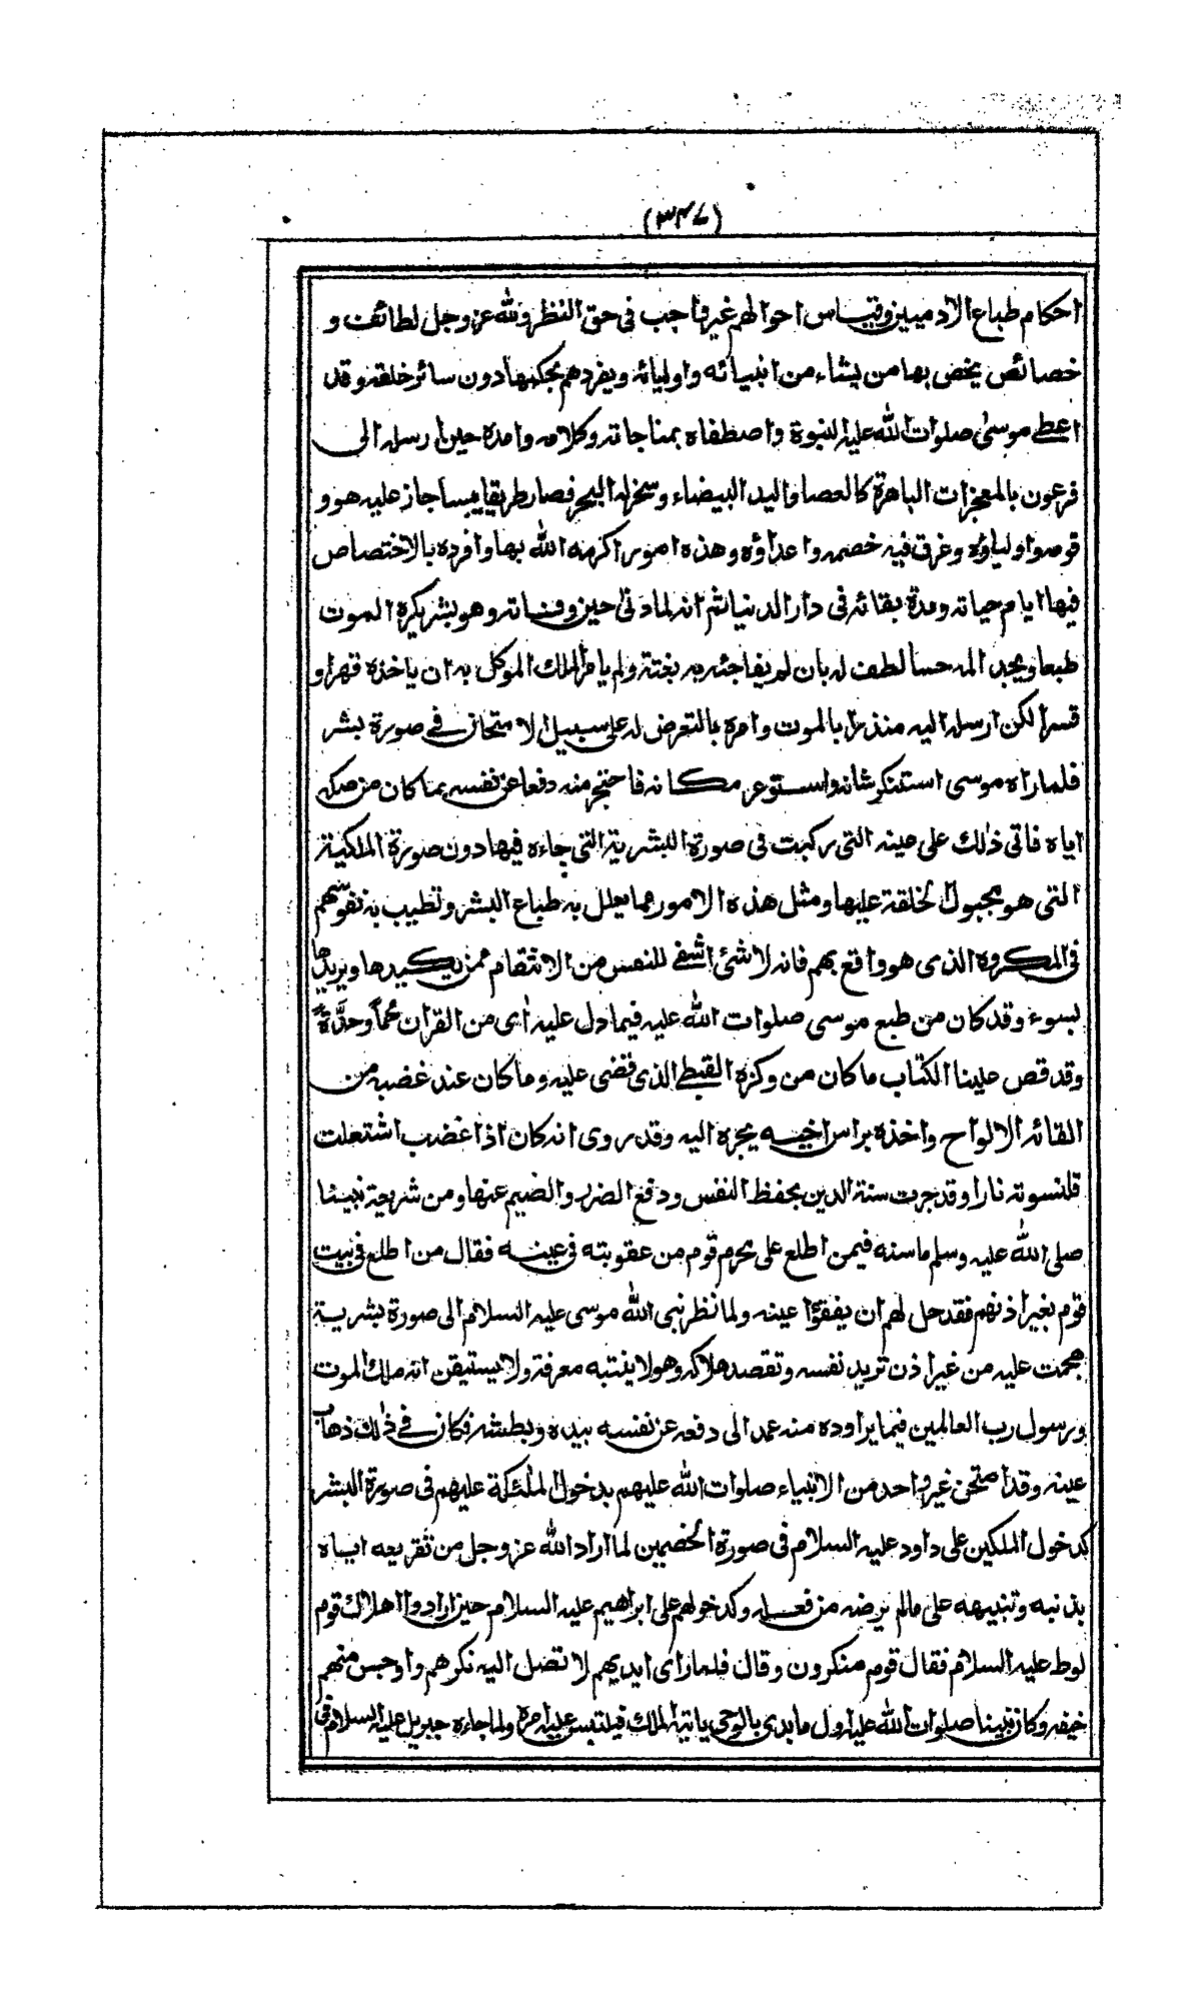 (٣٤٧)
احكام طباع الادميين وقياس احوالهم غير واجب فى حق النظر ولله عز وجل لطائف و
خصائص يخص بها من يشاء من انبيائه واوليائه ويفردهم بحكمها دون سائر خلقه وقد
اعطى موسىٰ صلوات الله عليه النبوة واصطفاه بمناجاته وكلامه وامده حين ارسله الى
فرعون بالمعجزات الباهرة كالعصا واليد البيضاء وسخر له البحر فصار طريقا يبسا جاز عليه هو و
قومه واولياؤه وغرق فيه خصمه واعداؤه وهذه امور اكرمه الله بها وافرده بالاختصاص
فيها ايام حياته ومدة بقائه فى دار الدنيا ثم انه لما دنى حين وفاته وهو بشر يكره الموت
طبعا ويجد المه حسا لطف له بان لم يفاجئه به بغتة ولم يامر الملك الموكل به ان ياخذه قهرا و
قسرا لكن ارسله اليه منذرا بالموت وامره بالتعرض له على سبيل الامتحان فى صورة بشر
فلما راه موسى استنكر شانه واستوعر مكانه فاحتجر منه دفعا عن نفسه بما كان من صكه
اياه فاتى ذٰلك على عينه التى ركبت فى صورة البشرية التى جاءه فيها دون صورة الملكية
التى هو مجبول الخلقة عليها ومثل هذه الامور مما يعلل به طباع البشر وتطيب به نفوسهم
فى المكروه الذى هو واقع بهم فانه لا شئ اشفى للنفس من الانتقام ممن يكيدها ويريدها
بسوء وقد كان من طبع موسى صلوات الله عليه فيما دل عليه اٰى من القران حمأ وحدّة
وقد قص علينا الكتاب ما كان من وكزه القبطى الذى قضى عليه وما كان عند غضبه من
القائه الالواح واخذه براس اخيه يجره اليه وقد روى انه كان اذا غضب اشتعلت
قلنسوته نارا وقد جرت سنة الدين بحفظ النفس ودفع الضرر والضيم عنها ومن شريعة نبينا
صلى الله عليه وسلم ما سنه فيمن اطلع على محرم قوم من عقوبته فى عينه فقال من اطلع فى بيت
قوم بغير اذنهم فقد حل لهم ان يفقؤا عينه ولما نظر نبى الله موسى عليه السلام الى صورة بشرية
هجمت عليه من غير اذن تريد نفسه وتقصد هلاكه وهو لا يثبته معرفة ولا يستيقن انه ملك الموت
ورسول رب العالمين فيما يراوده منه عمد الى دفعه عن نفسه بيده وبطشه فكان فى ذٰلك ذهاب
عينه وقد امتحن غير واحد من الانبياء صلوات الله عليهم بدخول الملٰئكة عليهم فى صورة البشر
كدخول الملكين على داود عليه السلام فى صورة الخصمين لما اراد الله عز وجل من تقريعه اياه
بذنبه وتنبيهه على مالم يرضه من فعله وكدخولهم على ابراهيم عليه السلام حين ارادوا اهلاك قوم
لوط عليه السلام فقال قوم منكرون وقال فلما راى ايديهم لا تصل اليه نكرهم واوجس منهم
خيفه وكان نبينا صلوات الله عليه اول ما بدى بالوحى ياتيه الملك فيلتبس عليه امره ولما جاءه جبريل عليه السلام فى